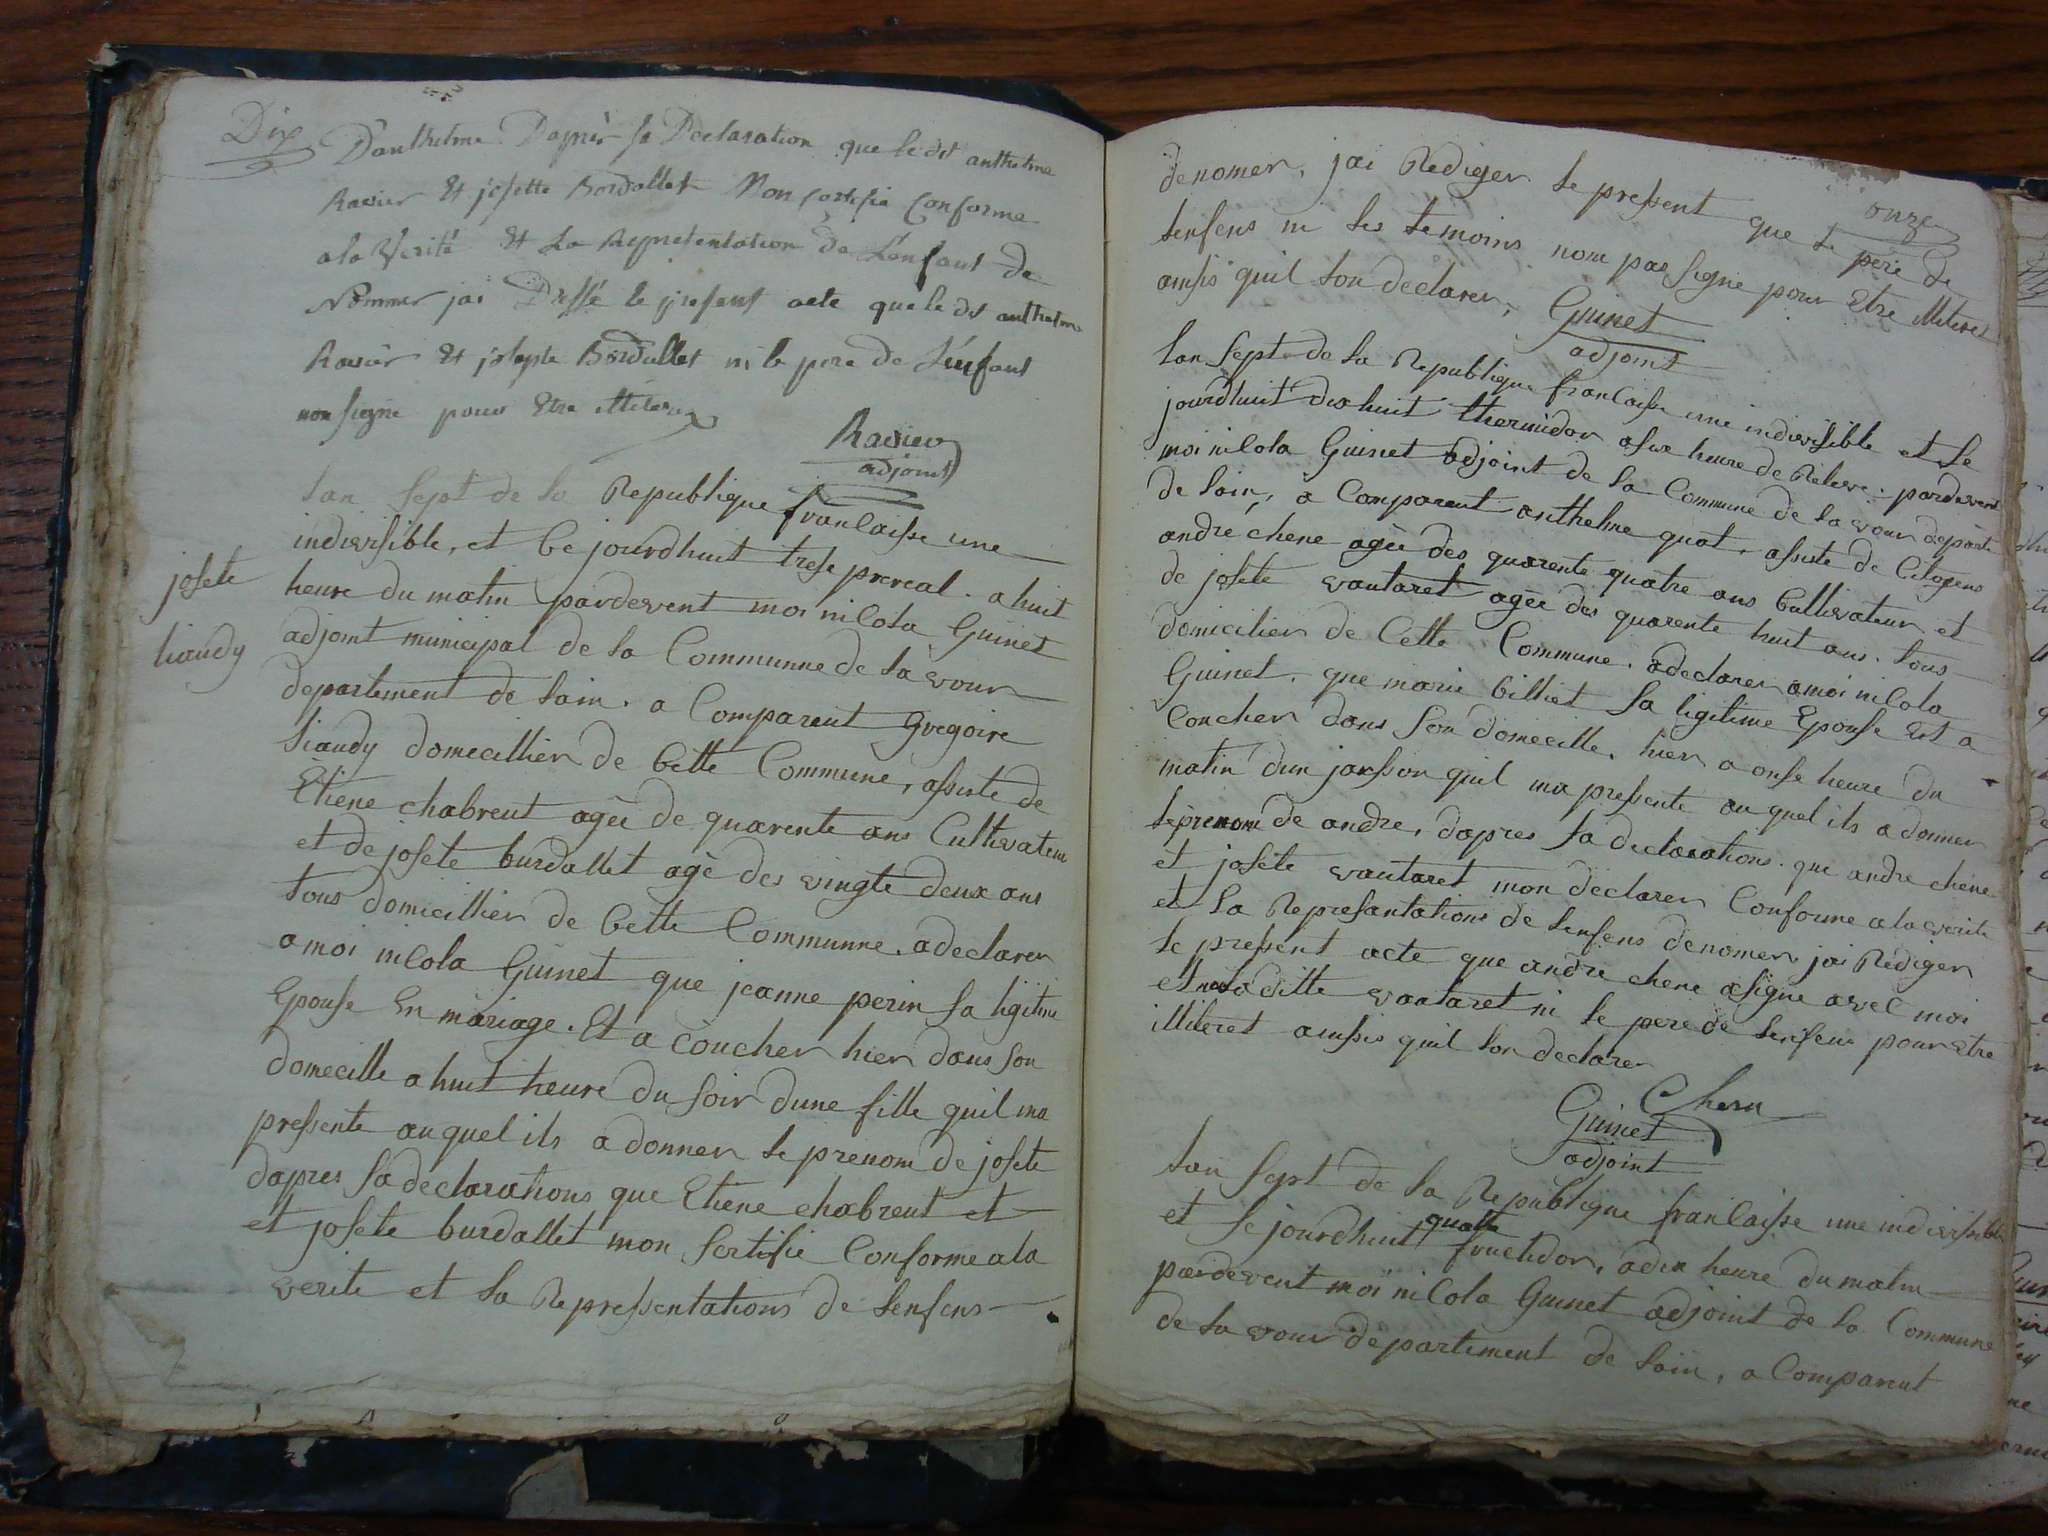 Dix
Danthelme Dapres sa Declaration que le dit anthelme
Ravier Et josette Bordallet Mon certifia Conforme
a la Verité Et La Representation de L'enfant De
Nommer jai Dressé le present acte que le dit anthelme
Ravier Et josepte Bordallet ni le pere de L'enfant
non signe pour Etre illiterez
Ravier
adjoint
josete
liaudy
lan sept de la Republique franlaisse une
indivisible, et le jourdhuit trese prereal. a huit
heure du matin pardevent moi nilola Guinet
adjoint municipal de la Communne de la vour
departement de lain. a Comparent Gregoire
liaudy domecillier de Cette Commune, assiste de
Etiene chabreut agée de quarente ans Cultivateur
et de josete burdallet agé des vingte deux ans
tous domicillier de Cette Communne. a declarer
a moi nilola Guinet que jeanne perin sa ligitime
Epouse En mariage. Et a coucher hier dans son
domecille a huit heure du soir dune fille quil ma
pressente au quel ils a donner le prenom de josete
dapres sa declarations que Etiene chabreut et
et josete burdallet mon sertifie Conforme a la
verite et la Repressentations de lenfens
onze
de nomer, jai Rediger le pressent que le pere de
lenfens ni les temoins nom pas signe pour Etre illiteret
ansis quil lon declarer,
Guinet
adjoint
lan sept de la Republique franlaisse une indivisible et le
jourdhuit dix huit thermidor a six heure de Releve. pardevent
moi nilola Guinet adjoint de la Commune de la vour departe
de lain, a Comparent anthelme quot, assiste de Citoyens
andré chene agée des quarente quatre ans Cultivateur et
de josete vautaret agée des quarente huit ans. tous
domicilier de Cette Commune. a declarer a moi nilola
Guinet, que marie billiet sa ligitime Epouse Est a
Coucher dans son domecille. hier a onse heure du
matin dun jansson quil ma pressente au quel ils a donner
le prenom de andre, dapres sa declarations. que andre chene
et josete vautaret mon declarer Conforme a la verite
et la Represantations de lenfens de nomer, jai Rediger
le pressent acte que andre chene a signe avec moi
et non la ditte vautaret ni le pere de lenfens pour Etre
illiteret ansis quil lon declarer
Chesn
Guinet
adjoint
lan sept de la Republique franlaisse une indivissible
et le jourdhuit quatte fructidor, a dix heure du matin
pardevent moi nilola Guinet adjoint de la Commune
de la vour departement de lain, a Comparent